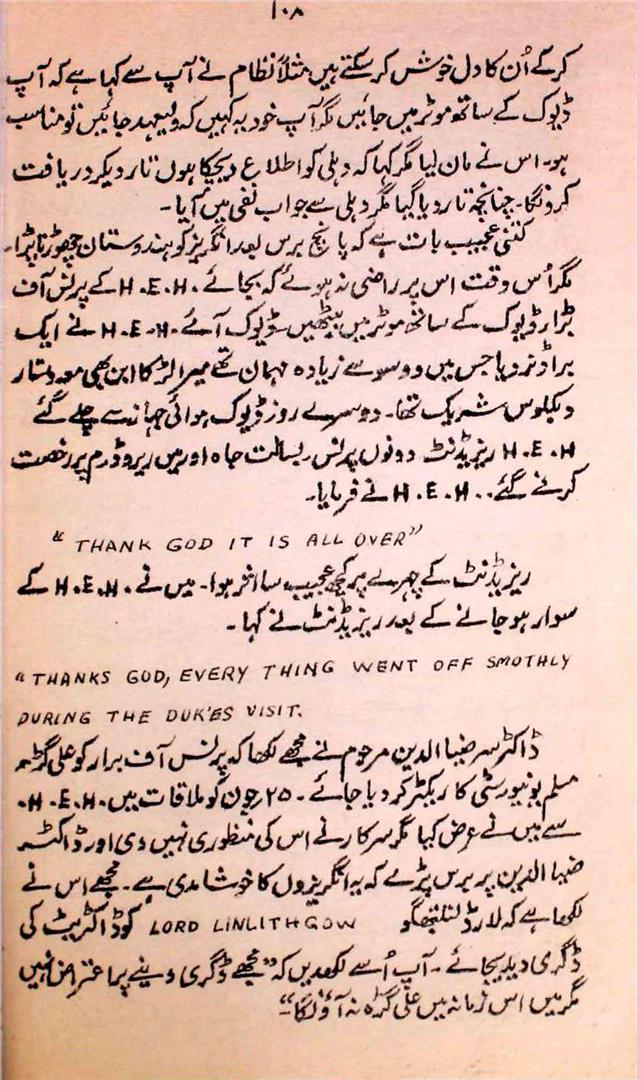 ۱۰۸
کرکے اُن کا دل خوش کر سکتے ہیں مثلاً نظام نے آپ سے کہا ہے کہ آپ
ڈیوک کے ساتھ موٹر میں جائیں مگر آپ خود یہ کہیں کہ ولیعہد جائیں تو مناسب
ہو۔ اس نے مان لیا مگر کہا کہ دہلی کو اطلاع دیچکا ہوں تار دیکر دریافت
کرونگا۔ چنانچہ تار دیا گیا مگر دہلی سے جواب نفی میں آیا۔
کتنی عجیب بات ہے کہ پانچ برس بعد انگریز کو ہندوستان چھوڑنا پڑا۔
مگر اُس وقت اس پر راضی نہ ہوئے کہ بجائے H.E.H. کے پرنس آف
برار ڈیوک کے ساتھ موٹر میں بیٹھیں۔ ڈیوک آئے۔ H.E.H نے ایک
بڑا ڈنر دیا جس میں دو سو سے زیادہ مہمان تھے میرا لڑکا ابن بھی معہ دستار
و بکلوس شریک تھا۔ دوسرے روز ڈیوک ہوائی جہاز سے چلے گئے
H.E.H ریزیڈنٹ دونوں پرنس رسالت جاہ اور میں ایروڈرم پر رخصت
کرنے گئے۔ H.E.H. نے فرمایا۔
“THANK GOD IT IS ALL OVER”
ریزیڈنٹ کے چہرے پر کچھ عجیب سا اثر ہوا۔ میں نے H.E.H. کے
سوار ہو جانے کے بعد ریزیڈنٹ نے کہا۔
“THANKS GOD, EVERY THING WENT OFF SMOTHLY
DURING THE DUK'ES VISIT.
ڈاکٹر سر ضیا الدین مرحوم نے مجھے لکھا کہ پرنس آف برار کو علی گڑھ
مسلم یونیورسٹی کا ریکٹر کر دیا جائے۔ ۲۵ جون کو ملاقات میں H.E.H.
سے میں نے عرض کیا مگر سرکار نے اس کی منظوری نہیں دی اور ڈاکٹر
ضیا الدین پر برس پڑے کہ یہ انگریزوں کا خوشامدی ہے۔ مجھے اس نے
لکھا ہے کہ لارڈ لنلتھگو LORD LINLITHGOW کو ڈاکٹریٹ کی
ڈگری دیدیجائے۔ آپ اُسے لکھدیں کہ “مجھے ڈگری دینے پر اعتراض نہیں
مگر میں اس زمانہ میں علی گڑھ نہ آؤنگا۔”